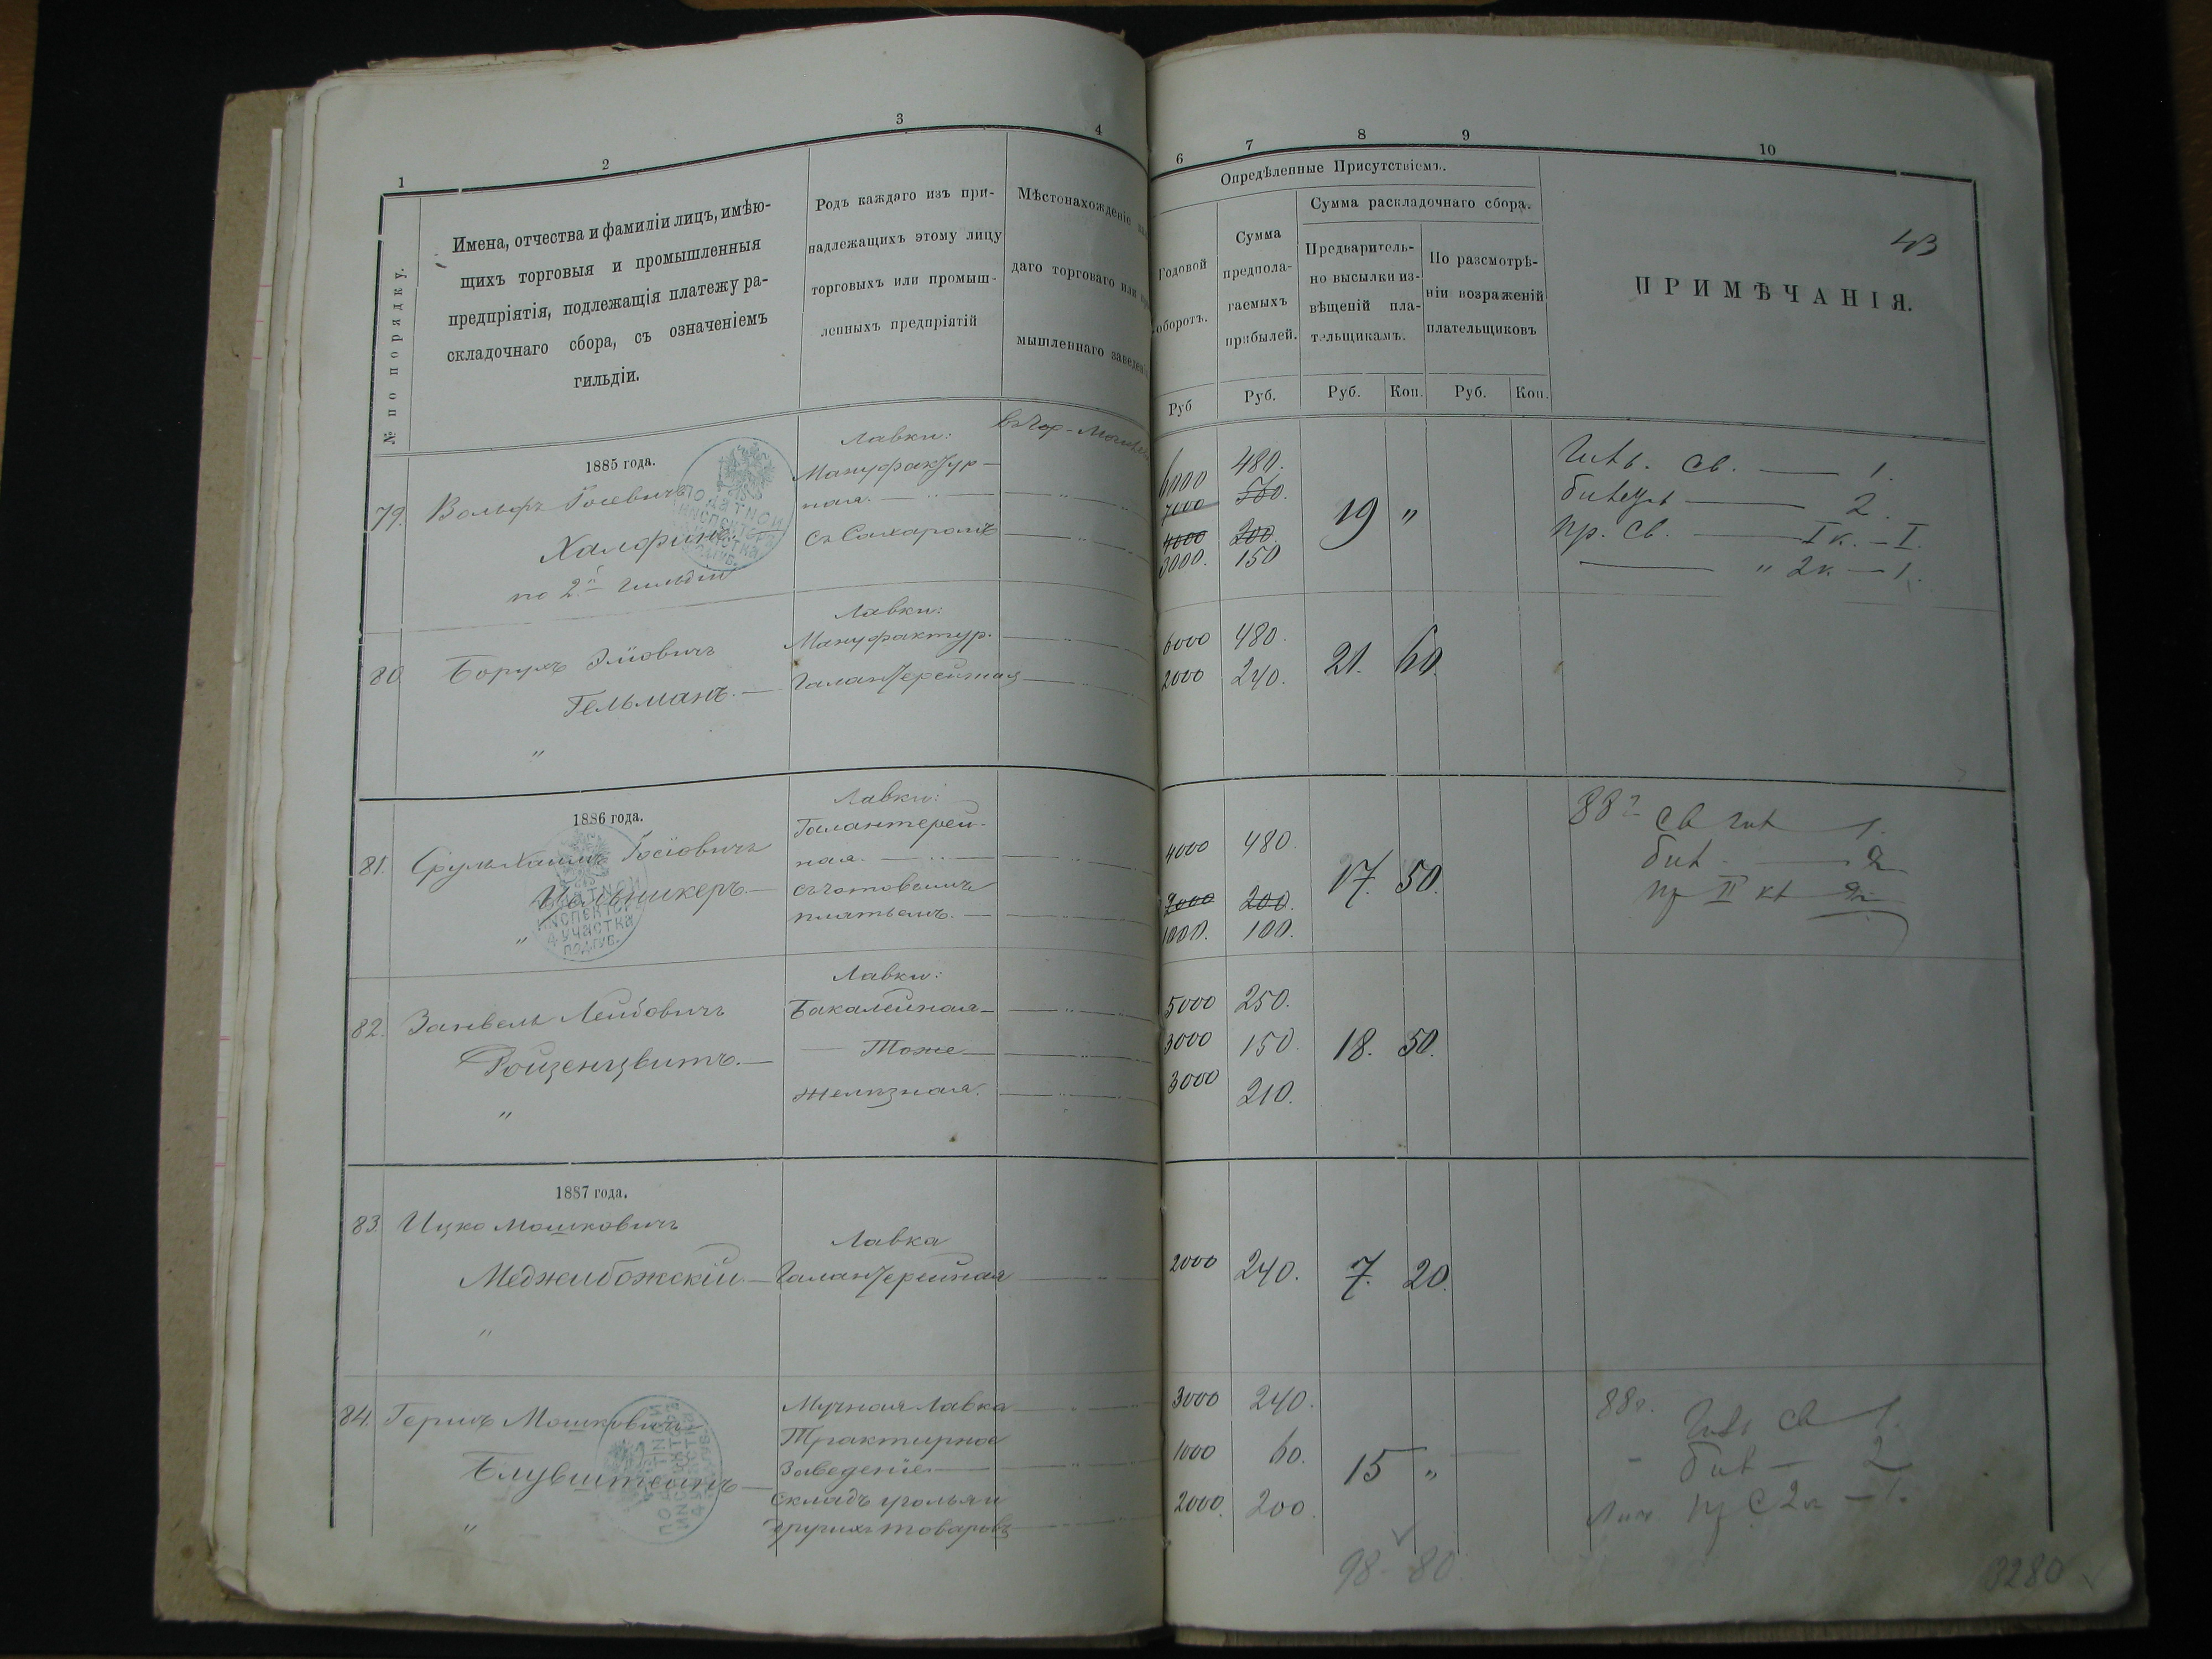 1
2
3
4
№ по порядку.
Имена, отчества и фамиліи лицъ, имѣю-
щихъ торговыя и промышленныя
предпріятія, подлежащія платежу ра-
складочнаго сбора, съ означеніемъ
гильдіи.
Родъ каждаго изъ при-
надлежащихъ этому лицу
торговыхъ или промыш-
ленныхъ предпріятій
Мѣстонахожденіе
даго торговаго или
мышленнаго
1885 года.
79. Вольфъ Іосевичъ
Халфинъ
по 2й гильдіи
Лавки:
Мануфактур-
ная.
Съ Сахаромъ
80 Борухъ
Гельманъ.
"
Лавки:
Мануфактур.
Галантерейная
1886 года.
81. Сруль Хаимъ Іосіовичъ
"
Лавки:
Галантерей-
ная.
съ готовымъ
платьемъ.
82. Занвель Лейбовичъ
Ройзенцвитъ.
"
Лавки:
Бакалейная
Тоже
Желѣзная.
1887 года.
83. Ицко Мошковичъ
Меджибожскій
"
Лавка
Галантерейная
84. Гершъ Мошковичъ
Блувштейнъ
"
Мучная Лавка
Трактирное
Заведеніе
Складъ уголья и
другихъ товаровъ
ПОДАТНОЙ
ИНСПЕКТОРЪ
4 УЧАСТКА
ПОД.ГУБ.
6
7
8
9
10
Опредѣленные Присутствіемъ.
Годовой
оборотъ.
Сумма
предпола-
гаемыхъ
прибылей.
Сумма раскладочнаго сбора.
Предваритель-
но высылки из-
вѣщеній пла-
тельщикамъ.
По разсмотрѣ-
ніи возраженій
плательщиковъ
ПРИМѢЧАНІЯ.
43
Руб
Руб.
Руб. Коп.
Руб. Коп.
6000 480.
7000 560.
4000 200.
3000. 150
19 "
св. — 1.
2.
пр. св. — I к. — I.
" 2 к. — 1.
6000 480.
2000 240.
21. 60.
4000 480.
2000 200.
1000. 100.
17. 50.
88 г
св 1.
2
пр II
5000 250.
3000 150.
3000 210.
18. 50.
2000 240.
7. 20.
3000 240.
1000 60.
2000. 200
15 "
88 г.
св 1.
2
98. 80.
3280